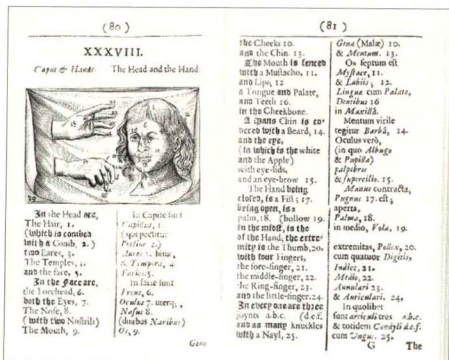 (80)
XXXVIII.
Caput & Manus. The Head and the Hand.
In the Head are,
The Hair, 1.
(which is combed
with a Comb, 2.)
two Ears, 3.
The Temples, 4.
and the face, 5.
In the Face are,
the Forehead, 6.
both the Eyes, 7.
The Nose, 8.
(with two Nostrils)
The Mouth, 9.
In Capite sunt
Capillus, 1.
Pectine 2.)
Aures 3. binæ,
& Tempora, 4.
Facies, 5.
In facie sunt
Frons, 6.
Oculus 7. uterq;,
Nasus 8.
(duabus Naribus)
Os, 9.
Genæ
(81)
the Cheeks 10.
and the Chin. 13.
The Mouth is fenced
with a Mustacho, 11.
and Lips, 12
a Tongue and Palate,
and Teeth 16.
in the Cheekbone.
A Mans Chin is co-
vered with a Beard, 14.
and the eye,
(in which is the white
and the Apple)
with eye-lids,
and an eye-brow 15.
The Hand being
closed, is a Fist; 17.
being open, is a
palm, 18. (hollow 19.
in the midst, is the
of the Hand, the extre-
mity is the Thumb, 20.
with four Fingers,
the fore-finger, 21.
the middle-finger, 22.
the Ring-finger, 23.
and the little-finger. 24.
In every one are three
joynts a.b.c. (d.e.f.
and as many knuckles
with a Nayl, 25.
Gena (Malæ) 10.
& Mentum. 13.
Os septum est
Mystace, 11.
& Labiis, 12.
Lingua cum Palato,
Dentibus 16
in Maxillâ.
Mentum virile
tegitur Barbâ, 14.
Oculus verò,
(in quo Albugo
& Pupilla)
palpebris
& supercilio. 15.
Manus contracta,
Pugnus 17. est;
aperta,
Palma, 18.
in medio, Vola, 19.
extremitas, Pollex, 20.
cum quatuor Digitis,
Indice, 21.
Medio, 22.
Annulari 23.
& Auriculari. 24.
In quolibet
sunt articuli tres a.b.c.
& totidem Condyli d.e.f.
cum Ungue. 25.
G The